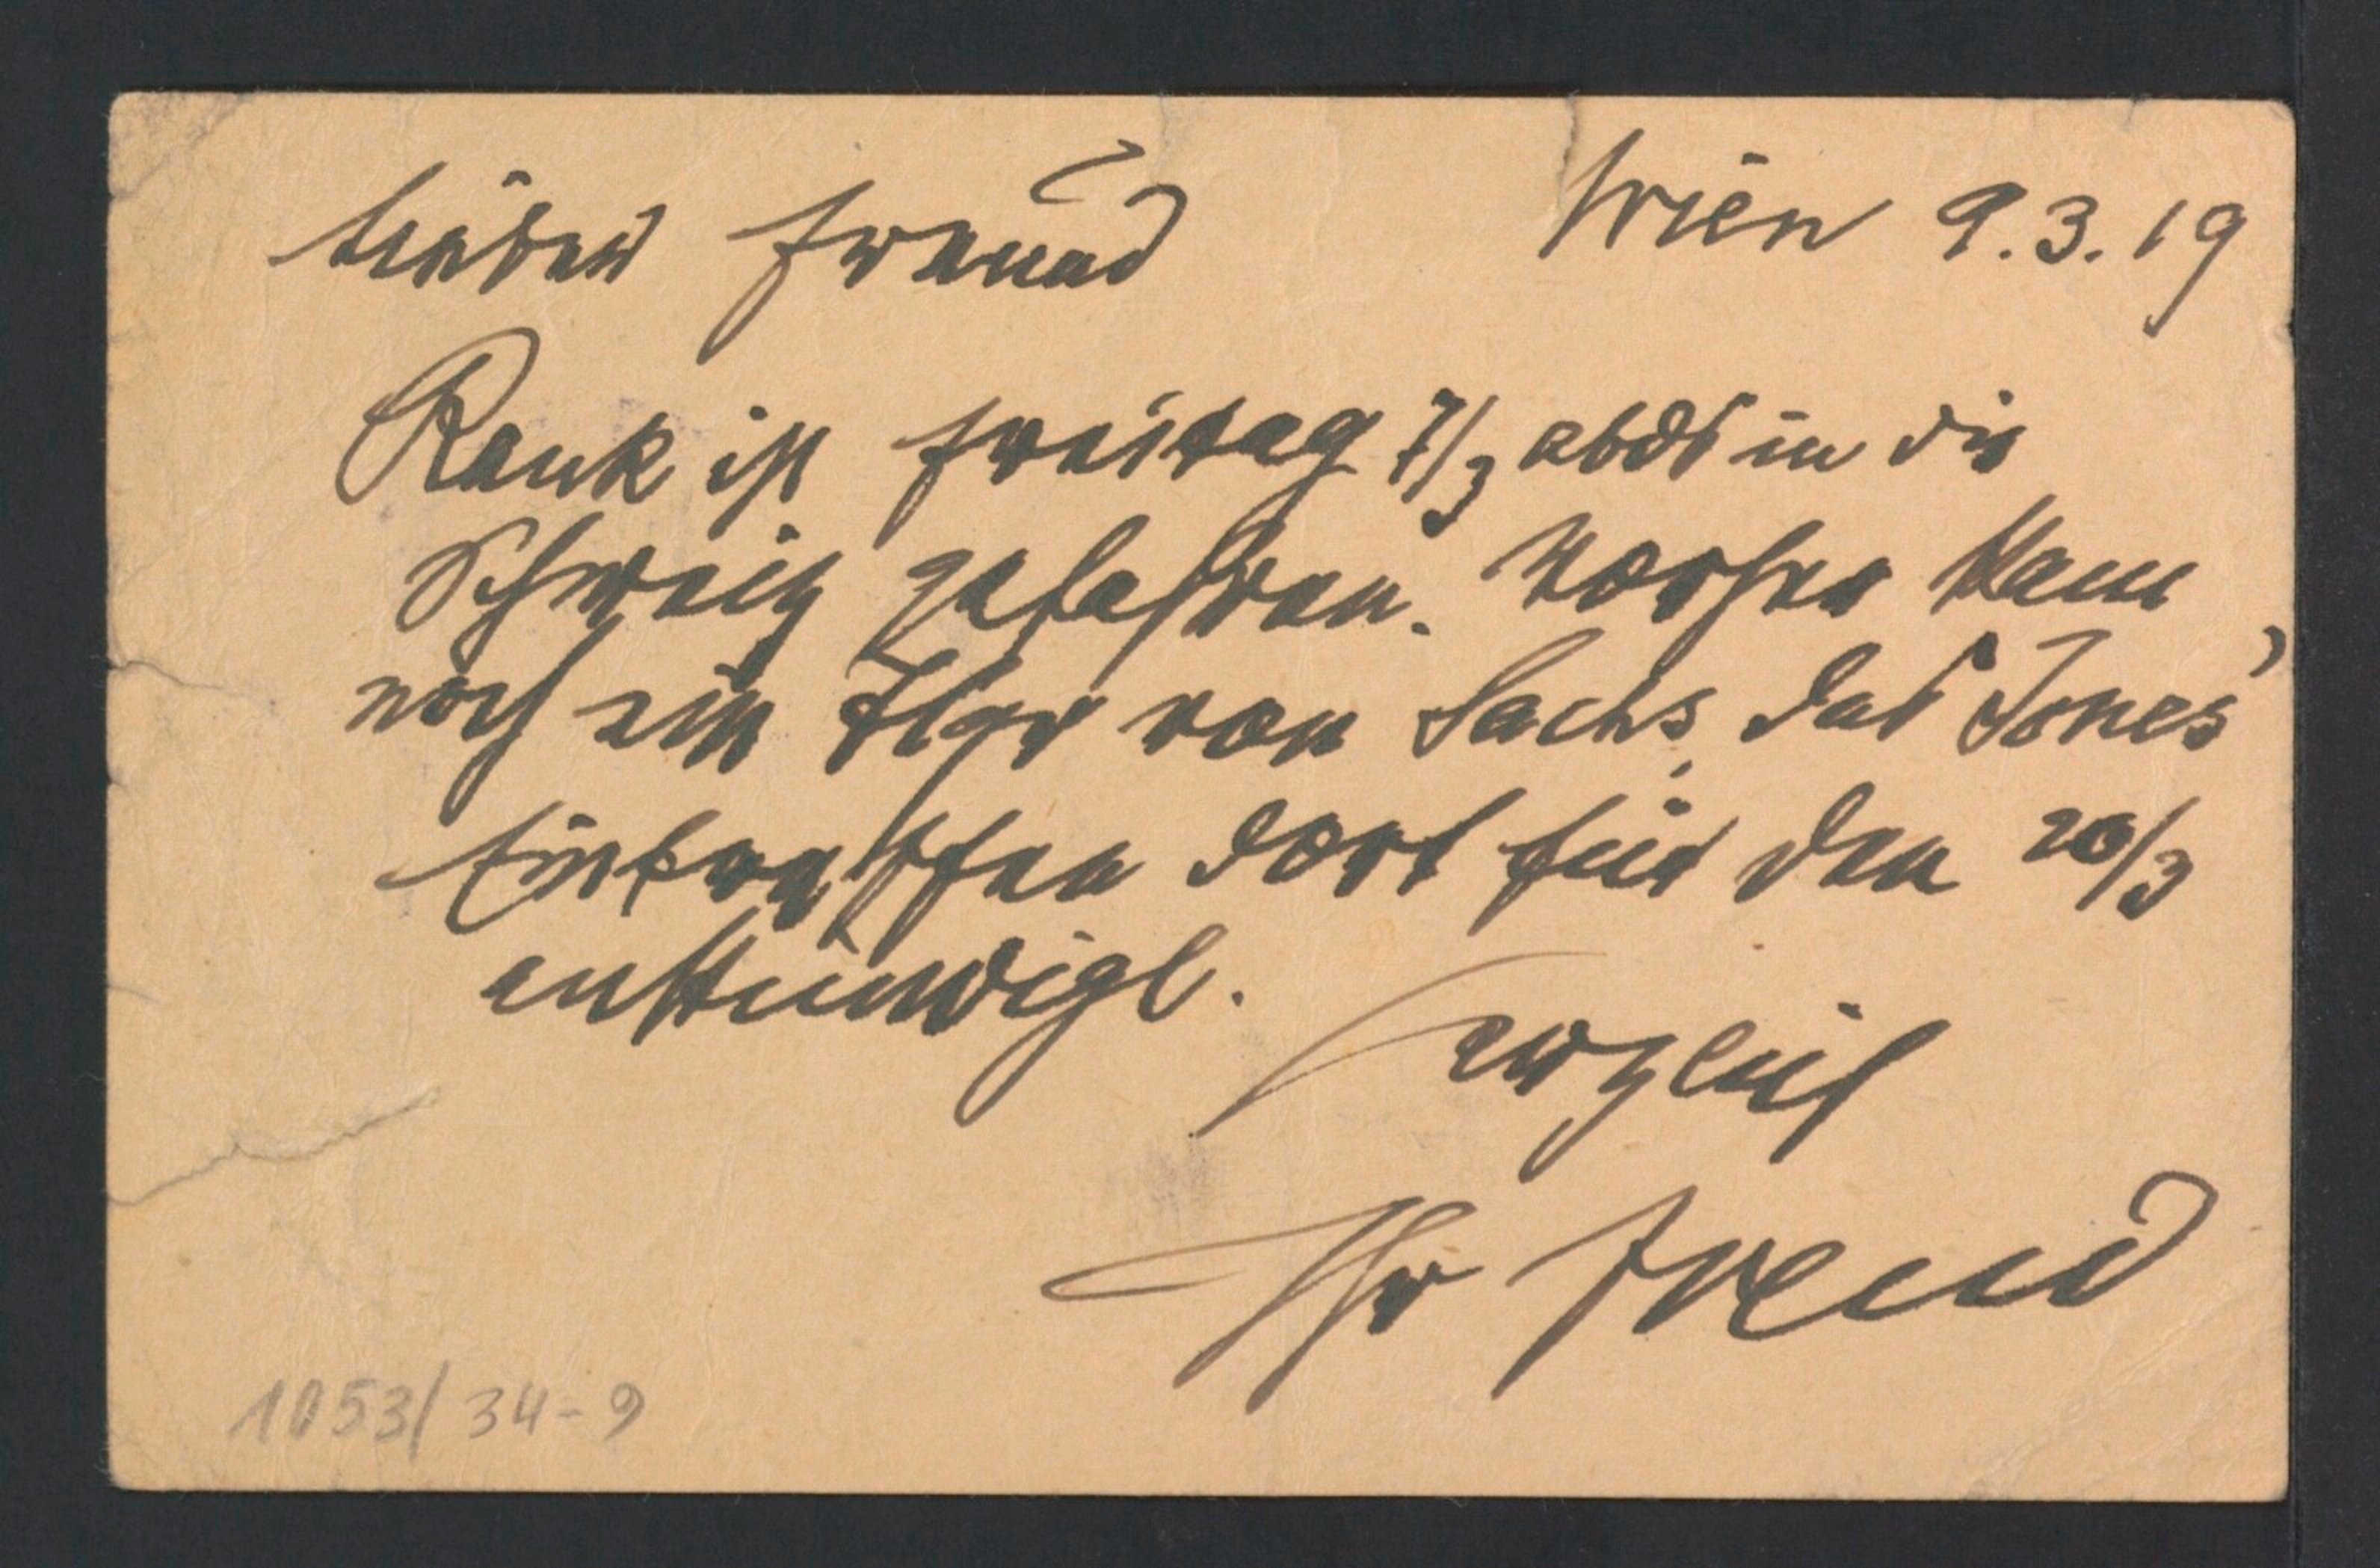 Lieber Freund
Wien 9.3.19
Rank ist Freitag 7/3 abds in die
Schweiz gefahren. Vorher kam
noch ein Tlgr von Sachs, das Jones'
Eintreffen dort für den 20/3
ankündigt.
Herzlich
Ihr Freud
1053/34-9